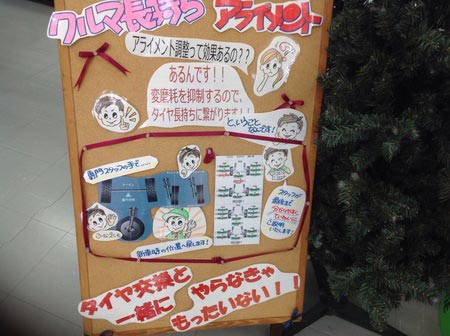 クルマ長持ち アライメント
アライメント調整って効果あるの??
あるんです!!
変磨耗を抑制するので、
タイヤ長持ちに繋がります!!
と、いうこと
なんです!
専門スタッフの手で……
新車時の位置へ戻します!
スタッフが
最後まで
ていねいに
ご説明
いたします!
タイヤ交換と
一緒に
やらなきゃ
もったいない!!